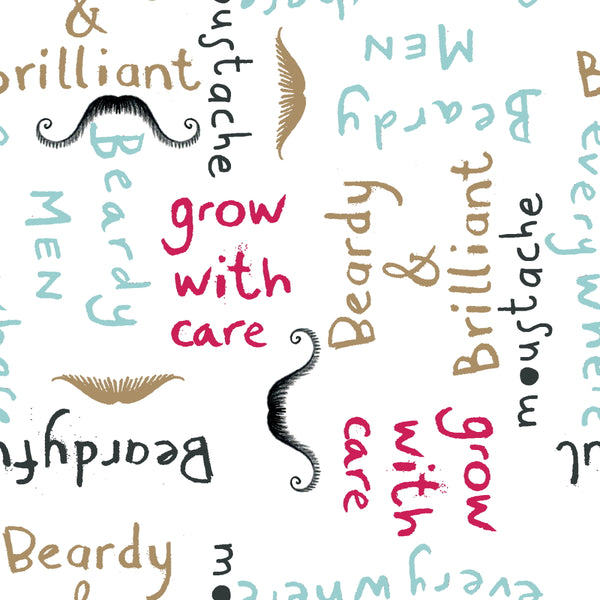 &
Brilliant
moustache
Beardy
MEN
Beardy
MEN
grow
with
care
Beardy
&
Brilliant
moustache
everywhere
Beardyful
grow
with
care
Beardy
&
everywhere